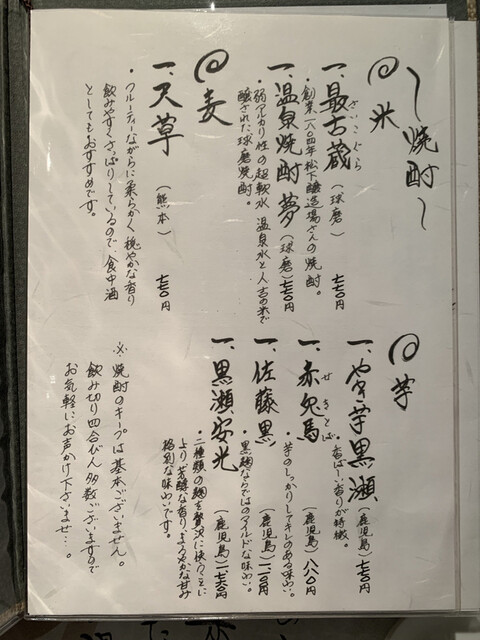 〜焼酎〜
◎米
一、最古蔵（球磨）七七〇円
さいこぐら
・創業一八〇四年松下醸造場さんの焼酎。
一、温泉焼酎夢（球磨）七七〇円
・弱アルカリ性の超軟水 温泉水と人吉の米で
醸された球磨焼酎。
◎麦
一、天草（熊本）七七〇円
・フルーティーながらに柔らかく穏やかな香り
飲みやすくさっぱりしているので、食中酒
としてもおすすめです。
◎芋
一、やき芋黒瀬（鹿児島）七七〇円
香ばしい香りが特徴。
一、赤兎馬（鹿児島）八八〇円
せきとば
芋のしっかりしてキレのある味わい。
一、佐藤黒（鹿児島）一、一〇〇円
・黒麹ならではのマイルドな味わい。
一、黒瀬安光（鹿児島）
・二種類の麹を贅沢に使うことに
より芳醇な香り、まろやかな甘み
格別な味わいです。
※焼酎のキープは基本ございません。
飲み切り四合びん多数ございますので
お気軽にお声かけ下さいませ…。